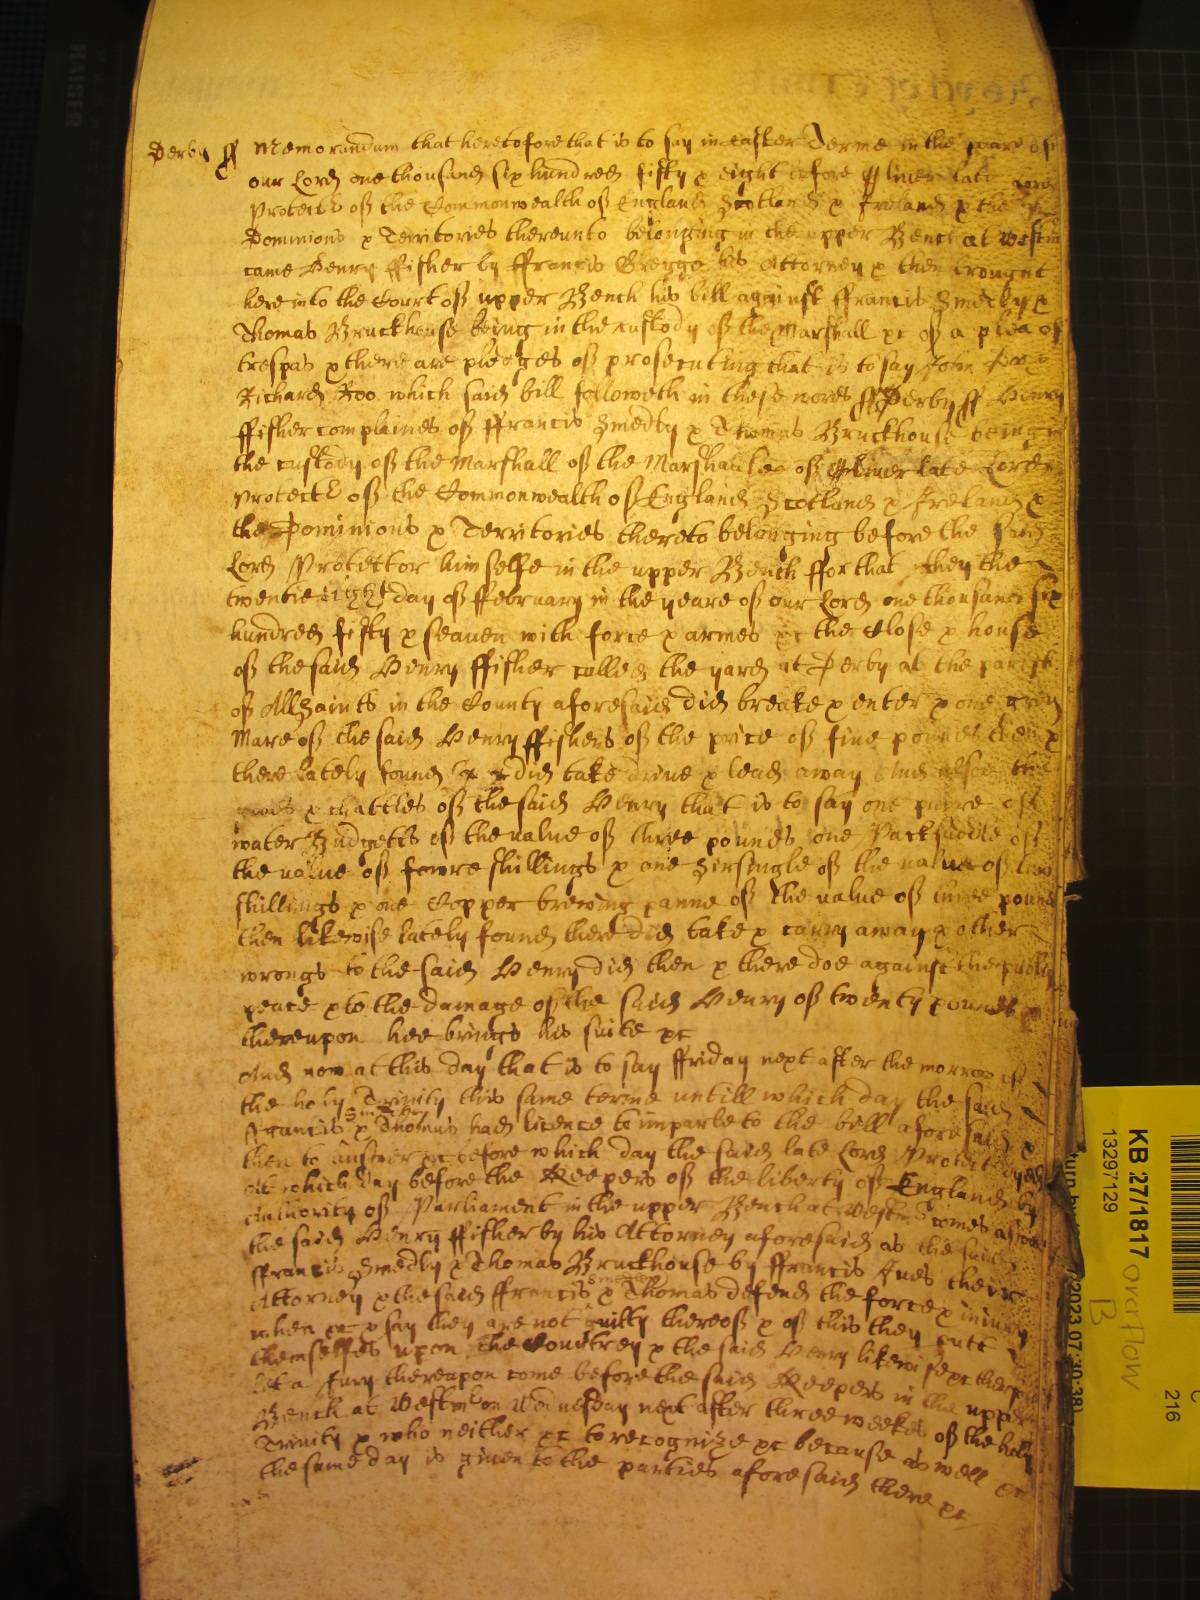 Derby ss Memorandum that heretofore that is to say in easter Terme in the yeare of
our Lord one thousand six hundred fifty & eight before Oliver late Lord
Protector of the Commonwealth of England Scotland & Ireland & the
Dominions & Territories thereunto belonging in the upper Bench at Westm
came Henry ffisher by ffrancis Gregge his Attorney & then brought
here into the Court of upper Bench his bill against ffrancis Smedly &
Thomas Bruckhouse being in the custody of the Marshall &c of a plea of
trespas & there are pledges of prosecuting that is to say John Doo &
Richard Roo which said bill followeth in these words ss Derby ss Henry
ffisher complaines of ffrancis Smedly & Thomas Bruckhouse being in
the custody of the Marshall of the Marshalsea of Oliver late Lord
Protector of the Commonwealth of England Scotland & Ireland &
the Dominions & Territories thereto belonging before the said
Lord Protector himselfe in the upper Bench ffor that they the
twentie eight day of ffebruary in the yeare of our Lord one thousand six
hundred fifty & seaven with force & armes &c the Close & house
of the said Henry ffisher called the yard at Derby at the parish
of All Saints in the County aforesaid did breake & enter & one gray
Mare of the said Henry ffishers of the price of five pounds then &
there lately found did take drive & lead away And alsoe the
goods & chattles of the said Henry that is to say one paire of
water Budgetts of the value of three pounds one Packsaddle of
the value of fowre shillings & one Sirsingle of the value of two
shillings & one Copper brewing panne of the value of three pounds
then likewise lately found there did take & carry away & other
wrongs to the said Henry did then & there doe against the publiq
peace & to the damage of the said Henry of twenty pounds &
thereupon hee brings his suite &c
And now at this day that is to say ffriday next after the morrow of
the holy Trinity this same terme untill which day the said
ffrancis Smedly & Thomas had licence to imparle to the bill aforesaid &
then to answer &c before which day the said late Lord Protector dyed
At which day before the Keepers of the liberty of England by
Authority of Parliament in the upper Bench at Westmr comes aswell
the said Henry ffisher by his Attorney aforesaid as the said
ffrancis Smedly & Thomas Bruckhouse by ffrancis Ives their
Attorney & the said ffrancis Smedly & Thomas defend the force & iniury
when &c & say they are not guilty thereof & of this they putt
themselfes upon the Countrey & the said Henry likewise &c therfore
let a Jury thereupon come before the said Keepers in the upper
Bench at Westmr on Wednesday next after three weekes of the holy
Trinity & who neither &c to recognize &c because as well &c
the same day is given to the parties aforesaid there &c
KB 27/1817 overflow
B
13297129
216